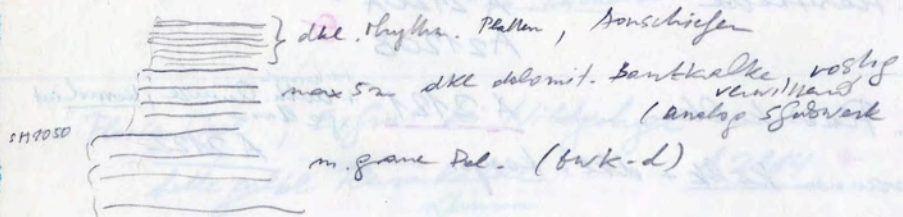 dkl. rhythm. Platten, Tonschiefer
max 5m dkl dolomit. Bankkalke, rostig
verwitternd
(analog
SH1050
m. graue Dol. (bwk-d)